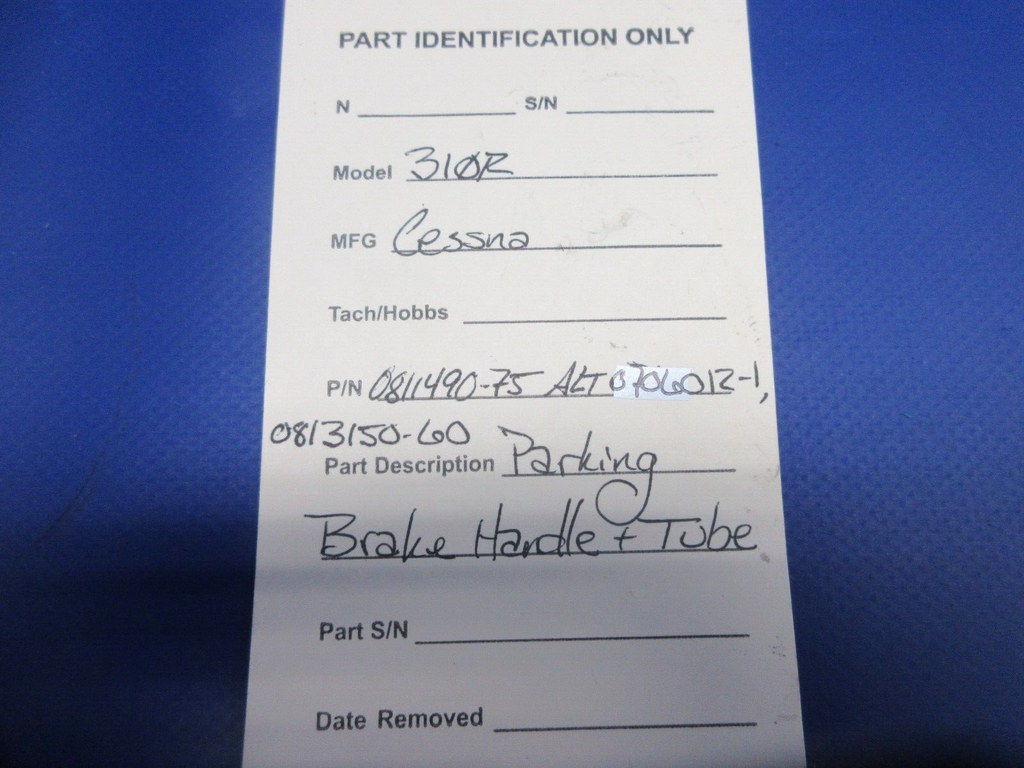 PART IDENTIFICATION ONLY
N S/N
Model 310R
MFG Cessna
Tach/Hobbs
P/N 0811490-75 ALT 0706012-1,
0813150-60
Part Description Parking
Brake Handle + Tube
Part S/N
Date Removed